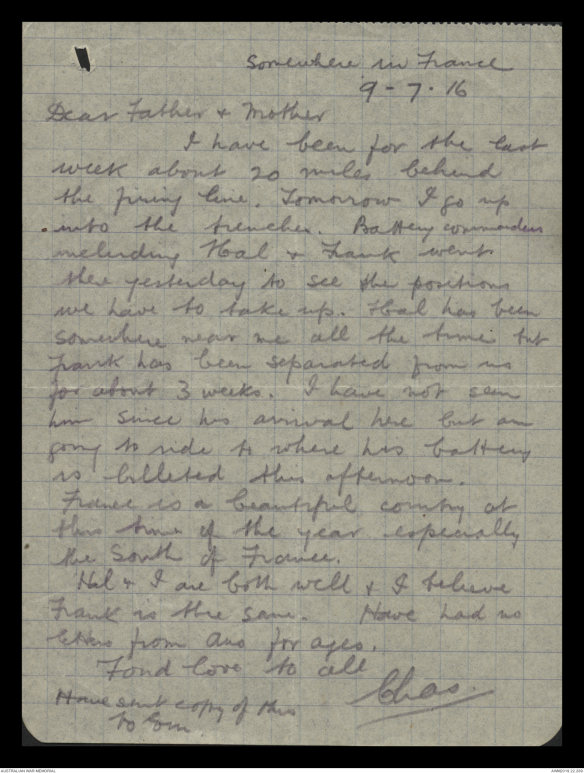 Somewhere in France
9-7-16
Dear Father & Mother
I have been for the last
week about 20 miles behind
the firing line. Tomorrow I go up
into the trenches. Battery commanders
including Hal & Frank went
there yesterday to see the positions
we have to take up. Hal has been
somewhere near me all the time but
Frank has been separated from us
for about 3 weeks. I have not seen
him since his arrival here but am
going to ride to where his battery
is billeted this afternoon.
France is a beautiful country at
this time of the year especially
the South of France.
Hal & I are both well & I believe
Frank is the same. Have had no
letters from Aus for ages.
Fond love to all
Chas.
Have sent copy of this
to
AUSTRALIAN WAR MEMORIAL